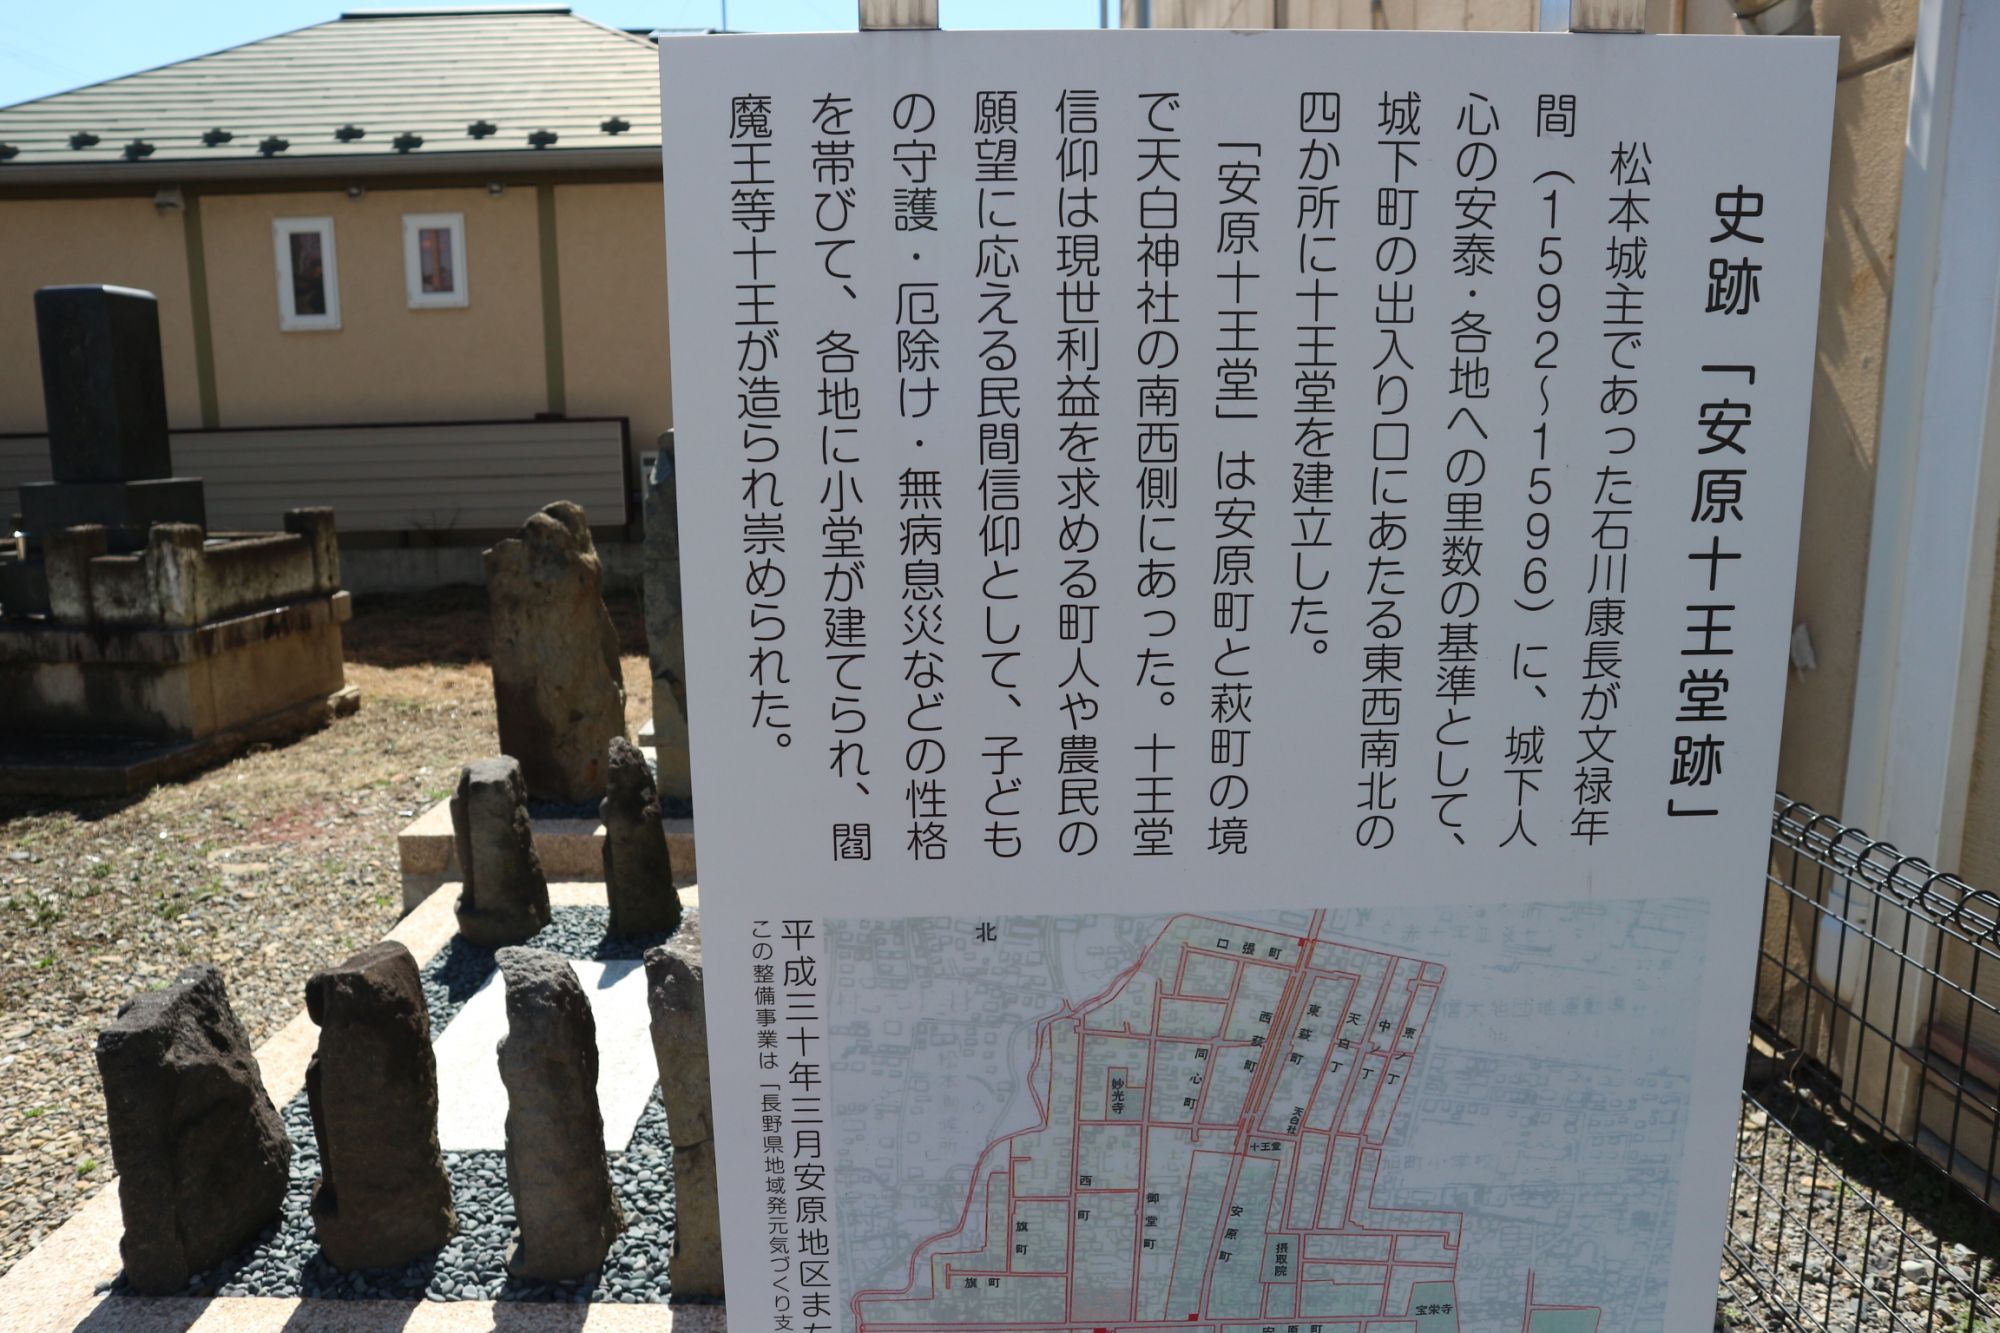 史跡「安原十王堂跡」
松本城主であった石川康長が文禄年
間（1592～1596）に、城下人
心の安泰・各地への里数の基準として、
城下町の出入り口にあたる東西南北の
四か所に十王堂を建立した。
「安原十王堂」は安原町と萩町の境
で天白神社の南西側にあった。十王堂
信仰は現世利益を求める町人や農民の
願望に応える民間信仰として、子ども
の守護・厄除け・無病息災などの性格
を帯びて、各地に小堂が建てられ、閻
魔王等十王が造られ崇められた。
平成三十年三月安原地区ま
この整備事業は「長野県地域発元気づくり支
北
口張町
東萩町
西萩町
天白丁
中ノ丁
東ノ丁
同心町
妙光寺
天白社
十王堂
西町
御堂町
安原町
旗町
旗町
摂取院
宝栄寺
安原町